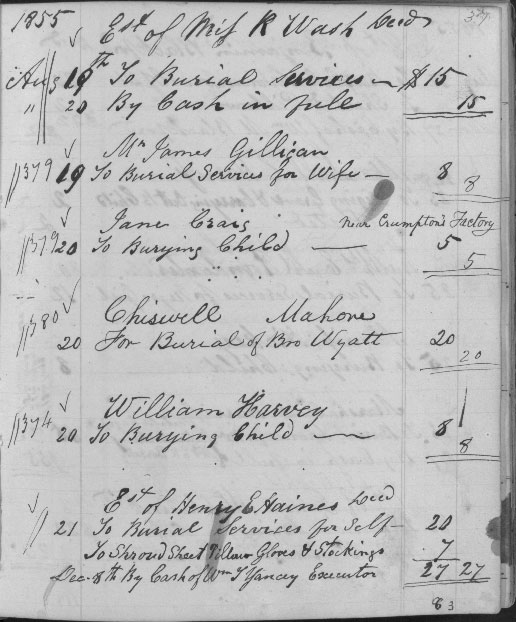 1855 37
Est of Miss R Wash Decd
Aug 19th To Burial Services — $15
" 20 By Cash in full 15
Mr James Gilligan
379 19 To Burial Services for Wife — 8 8
Jane Craig near Crumpton's Factory
379 20 To Burying Child — 5 5
Chiswell Mahone
380 20 For Burial of Bro Wyatt 20 20
William Harvey
374 20 To Burying Child — 8 8
Est of Henry E Haines Decd
21 To Burial Services for Self — 20
To Shroud Sheet Pillow Gloves & Stockings 7
Dec 8th By Cash of Wm T Yancey Executor 27 27
83